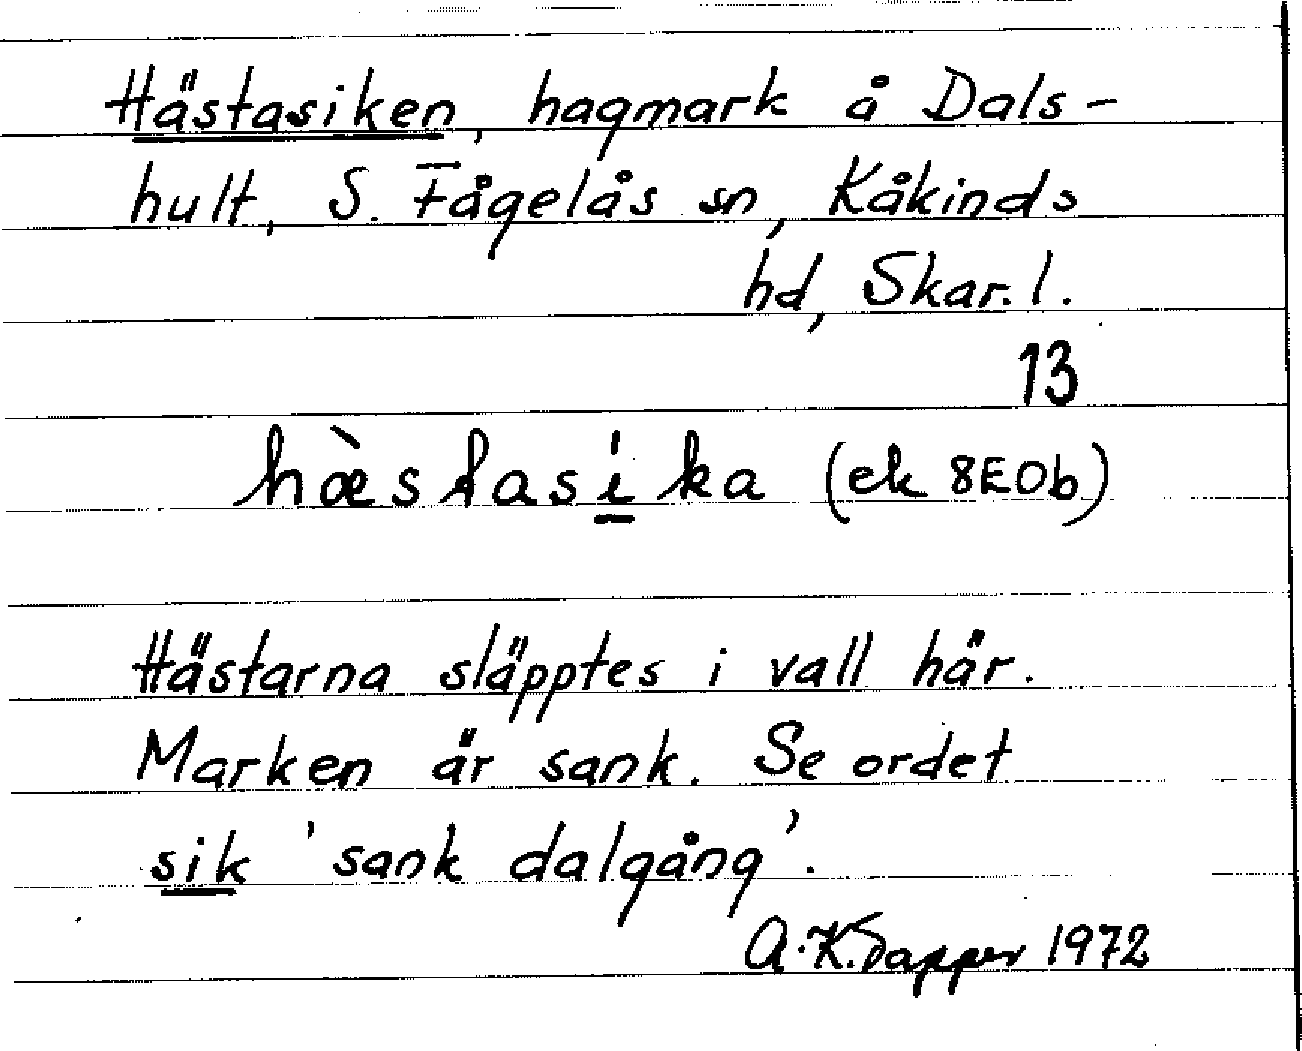 Hästasiken, hagmark å Dals-
hult, S. Fågelås sn, Kåkinds
hd, Skar. l.
13
hæ̀stasi̱ka (ek 8E0b)
Hästarna släpptes i vall här.
Marken är sank. Se ordet
sik 'sank dalgång'.
A.K. 1972